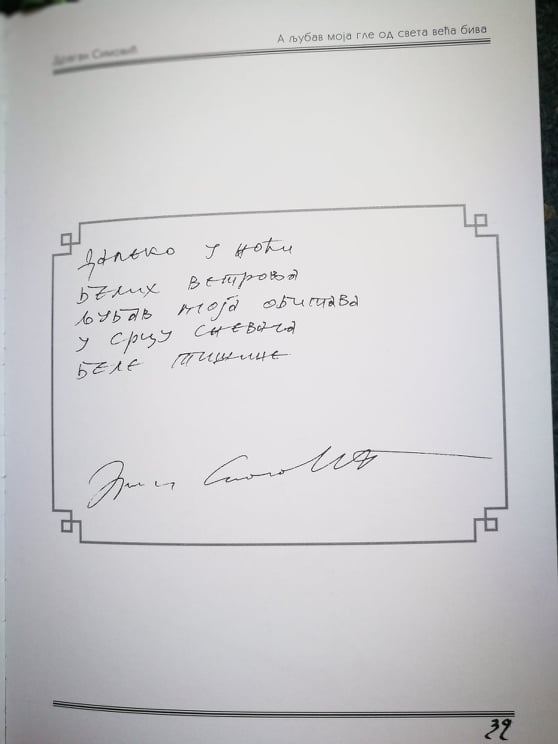 Драган Симовић
А љубав моја гле од света већа бива
Далеко у ноћи
белих ветрова
љубав моја обитава
у срцу сневача
беле тишине
39